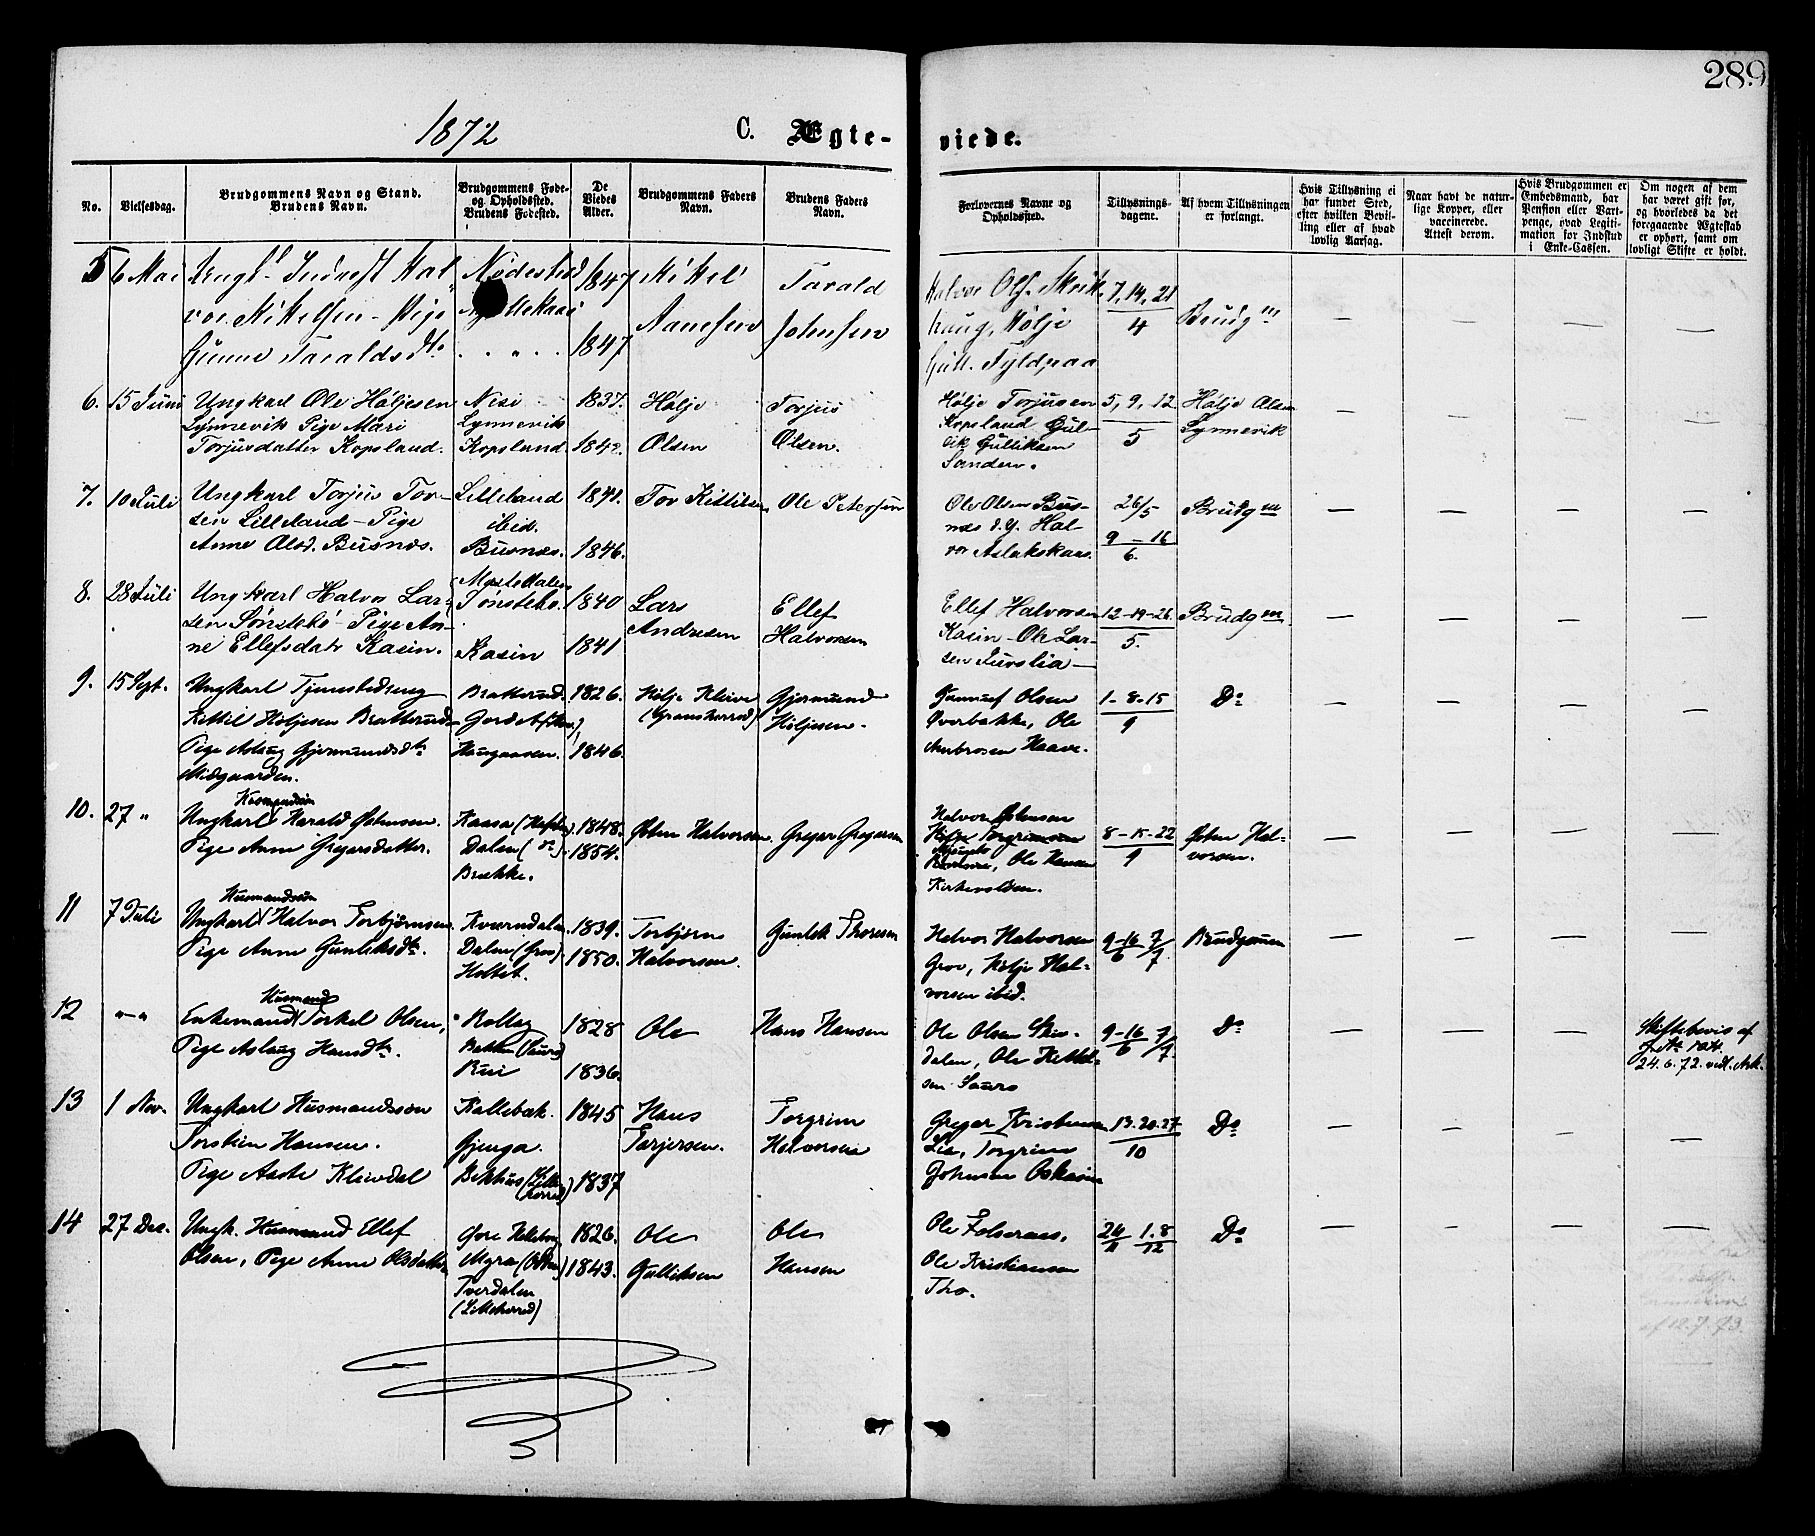 289
1872
C. Ægte-
viede.
No.
Vielsesdag.
Brudgommens Navn og Stand.
Brudens Navn.
Brudgommens Føde-
og Opholdssted.
Brudens Fødested.
De
Viedes
Alder.
Brudgommens Faders
Navn.
Brudens Faders
Navn.
Forlovernes Navne og
Opholdssted.
Tillysnings-
dagene.
Af hvem Tillysningen
er forlangt.
Hvis Tillysning ei
har fundet Sted,
efter hvilken Bevil-
ling eller af hvad
lovlig Aarsag.
Naar havt de natur-
lige Kopper, eller
vaccinerede.
Attest derom.
Hvis Brudgommen er
Embedsmand, har
Pension eller Vart-
penge, hvad Legiti-
mation for Indskud
i Enke-Cassen.
Om nogen af dem
har været gift før,
og hvorledes da det
foregaaende Ægteskab
er ophørt, samt om
lovligt Skifte er holdt.
5 6 Mai Hal-
vor Mikelsen - Pige
Gunne Taraldsdtr
1847
1847
Mikel
Aanesen
Tarald
Johnsen
Halvor Ols.
haug, Hølje
Gull.
7, 14, 21
4
Brudgm
6. 15 Juni Ungkarl Ole Høljesen
Lynnevik Pige Mari
Torjusdatter Kopsland.
Lynnevik
Kopsland.
1837.
1842.
Hølje
Olsen
Torjus
Olsen.
Hølje Torjusen
Kopsland Gul-
lik Gulliksen
Sanden.
5, 9, 12
5
Hølje Olsen
Lynnevik
7. 10 Juli Ungkarl Torjus Tor-
sen Lilleland - Pige
Anne Olsd. Busnes.
Lilleland
ibid.
Busnes.
1841.
1846.
Tov Kittilsen
Ole Petersen
Ole Olsen Bus-
nes d.y. Hal-
vor Aslakskaas.
26/5
9 - 16
6.
Brudgm
8. 28 Juli Ungkarl Halvor Lar-
sen Sønstebø - Pige An-
ne Ellefsdatr Kasin.
Sønstebø.
Kasin
1840
1841
Lars
Andresen
Ellef
Halvorsen
Ellef Halvorsen
Kasin - Ole Lar-
sen
12-19-26
5.
Brudgm
9. 15 Sept. Ungkarl Tjenestedreng
Kittil Høljesen Bratterud
Pige Aslaug Gjermundsdtr
Midgaarden.
Bratterud.
Haugaasen.
1826.
1846.
Hølje Kleive
(Gransherred)
Gjermund
Høljesen.
Gunnuf Olsen
Øverbakke, Ole
Ambrosen Haave.
1-8-15
9
Do
10. 27 "
Husmandssøn
Ungkarl Harald Østensen.
Pige Anne Gregarsdatter.
Kaasa
Dalen (do).
Brække.
1848.
1854.
Østen Halvorsen.
Gregar Gregarsen
Halvor Østensen
Hølje Torgrimsen
Ole Hansen
Kirkevolden.
8-15-22
9
Østen Hal-
vorsen.
11 7 Juli
Husmandssøn
Ungkarl Halvor Torbjørnsen.
Pige Anne Gunleksdtr.
Kverndalen
Dalen (Grov)
Holtet.
1839.
1850.
Torbjørn
Halvorsen.
Gunlek Thoresen
Halvor Halvorsen
Grov, Hølje Hal-
vorsen ibid.
9-16 7/7
6
Brudgommen
12 " "
Husmand
Enkemand Torkel Olsen,
Pige Aslaug Hansdtr.
Rollag
Bakken
Rui
1828
1836.
Ole
Hans Hansen
Ole Olsen Skir-
dalen, Ole Kittil-
sen Sauro
9-16 7/7
6
Do
Skiftebevis af
24.6.72. vedl. Ark.
13 1 Nov. Ungkarl Husmandssøn
Torstein Hansen.
Pige Aaste Kleivdal
Kallebæk.
Gjenga.
1845
1837
Hans
Tarjersen.
Torgrim
Halvorsen
Gregar Kristensen
Lia, Torgrim
Johnsen
13. 20. 27
10
Do
14 27 Des. Ungk. Husmand Ellef
Olsen, Pige Anne Olsdatter
Myra
Tverdalen
(Lilleherred)
1826.
1843.
Ole
Gulliksen
Ole
Hansen
Ole
Ole Kristiansen
Tho.
24 1. 8
11 12
Do
af 12.7.73.